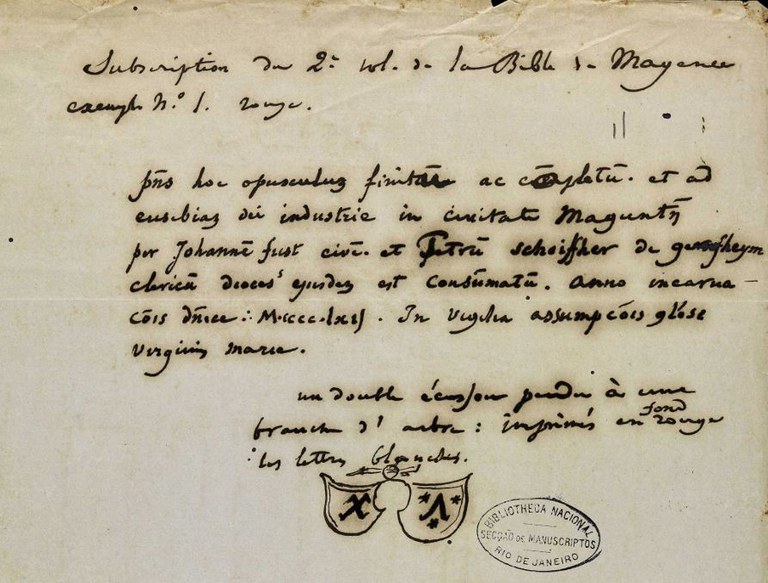 Subscription du 2e vol. de la Bible de Mayence
exempl. N.o 1. rouge.
pñs hoc opusculuz finitū ac cōpletū. et ad
eusebiaz dei industrie in civitate Maguntñ
per Johannē fust cive. et Petrū schoiffher de gernsheym
clericū dioces' ejusdez est consūmatū. Anno incarna-
cōis dñice. M.cccc.lxij. In vigilia assumpcōis glōse
virginis marie.
un double écusson pendu à une
branche d'arbre : imprimés en fond rouge
les lettres blanches.
X Λ
BIBLIOTHECA NACIONAL
SECÇÃO DE MANUSCRIPTOS
RIO DE JANEIRO